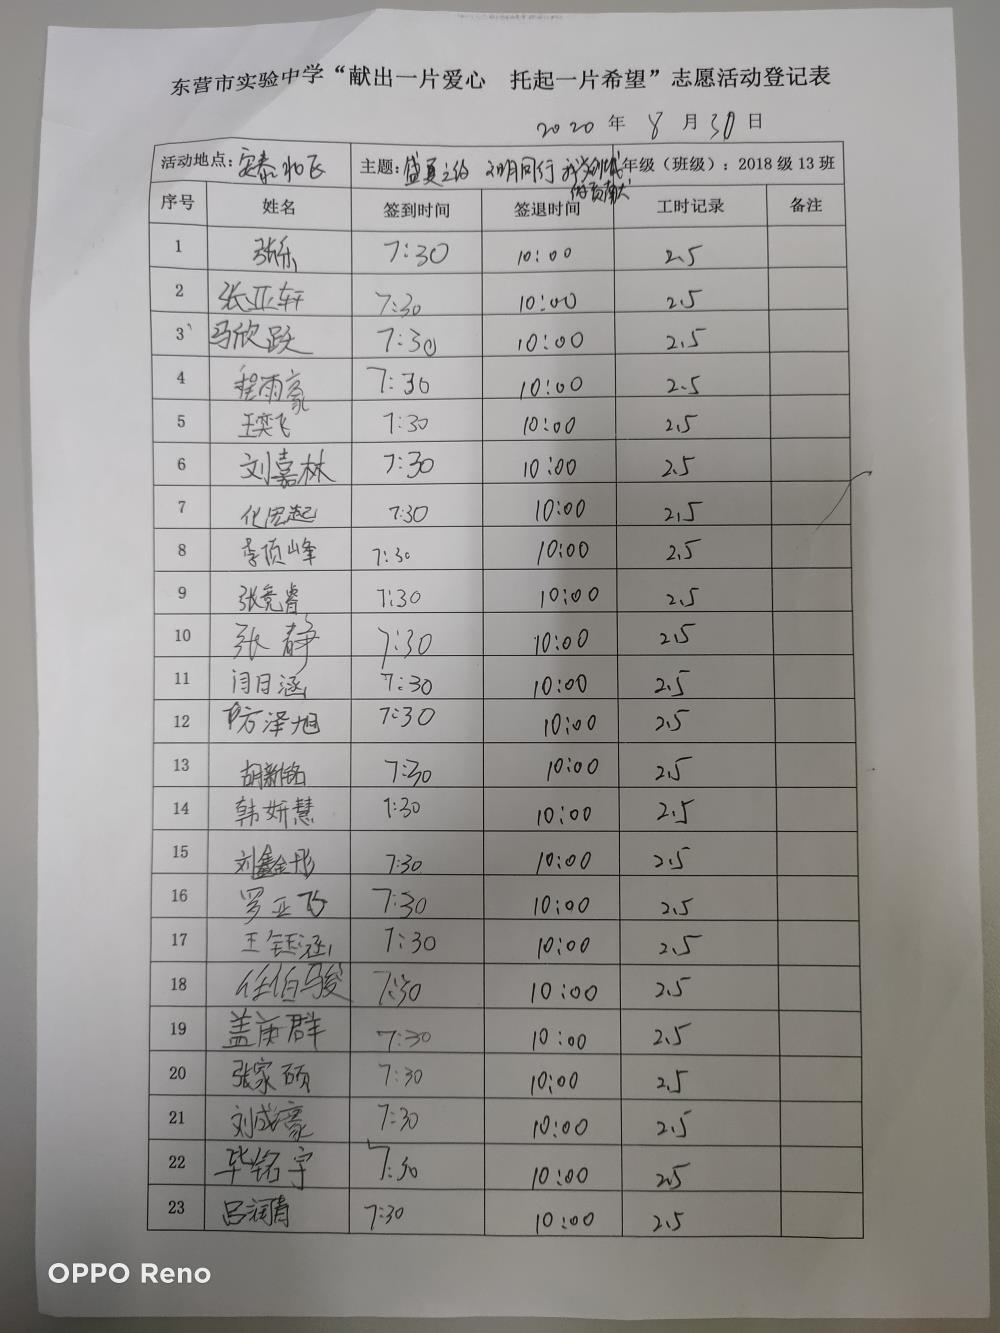 东营市实验中学“献出一片爱心 托起一片希望”志愿活动登记表
2020 年 8 月 30 日
活动地点: 安泰 主题: 盛夏之约 文明同行 我为创城做贡献 年级（班级）: 2018 级 13 班
序号 姓名 签到时间 签退时间 工时记录 备注
1 张乐 7:30 10:00 2.5
2 张亚轩 7:30 10:00 2.5
3 马欣跃 7:30 10:00 2.5
4 程雨豪 7:30 10:00 2.5
5 王奕飞 7:30 10:00 2.5
6 刘嘉林 7:30 10:00 2.5
7 7:30 10:00 2.5
8 李顶峰 7:30 10:00 2.5
9 张竞睿 7:30 10:00 2.5
10 张静 7:30 10:00 2.5
11 闫日涵 7:30 10:00 2.5
12 泽旭 7:30 10:00 2.5
13 胡新铭 7:30 10:00 2.5
14 韩妍慧 7:30 10:00 2.5
15 刘鑫彤 7:30 10:00 2.5
16 罗亚飞 7:30 10:00 2.5
17 王钰涵 7:30 10:00 2.5
18 任伯骏 7:30 10:00 2.5
19 盖庚群 7:30 10:00 2.5
20 张家硕 7:30 10:00 2.5
21 刘成豪 7:30 10:00 2.5
22 毕铭宇 7:30 10:00 2.5
23 吕润青 7:30 10:00 2.5
OPPO Reno